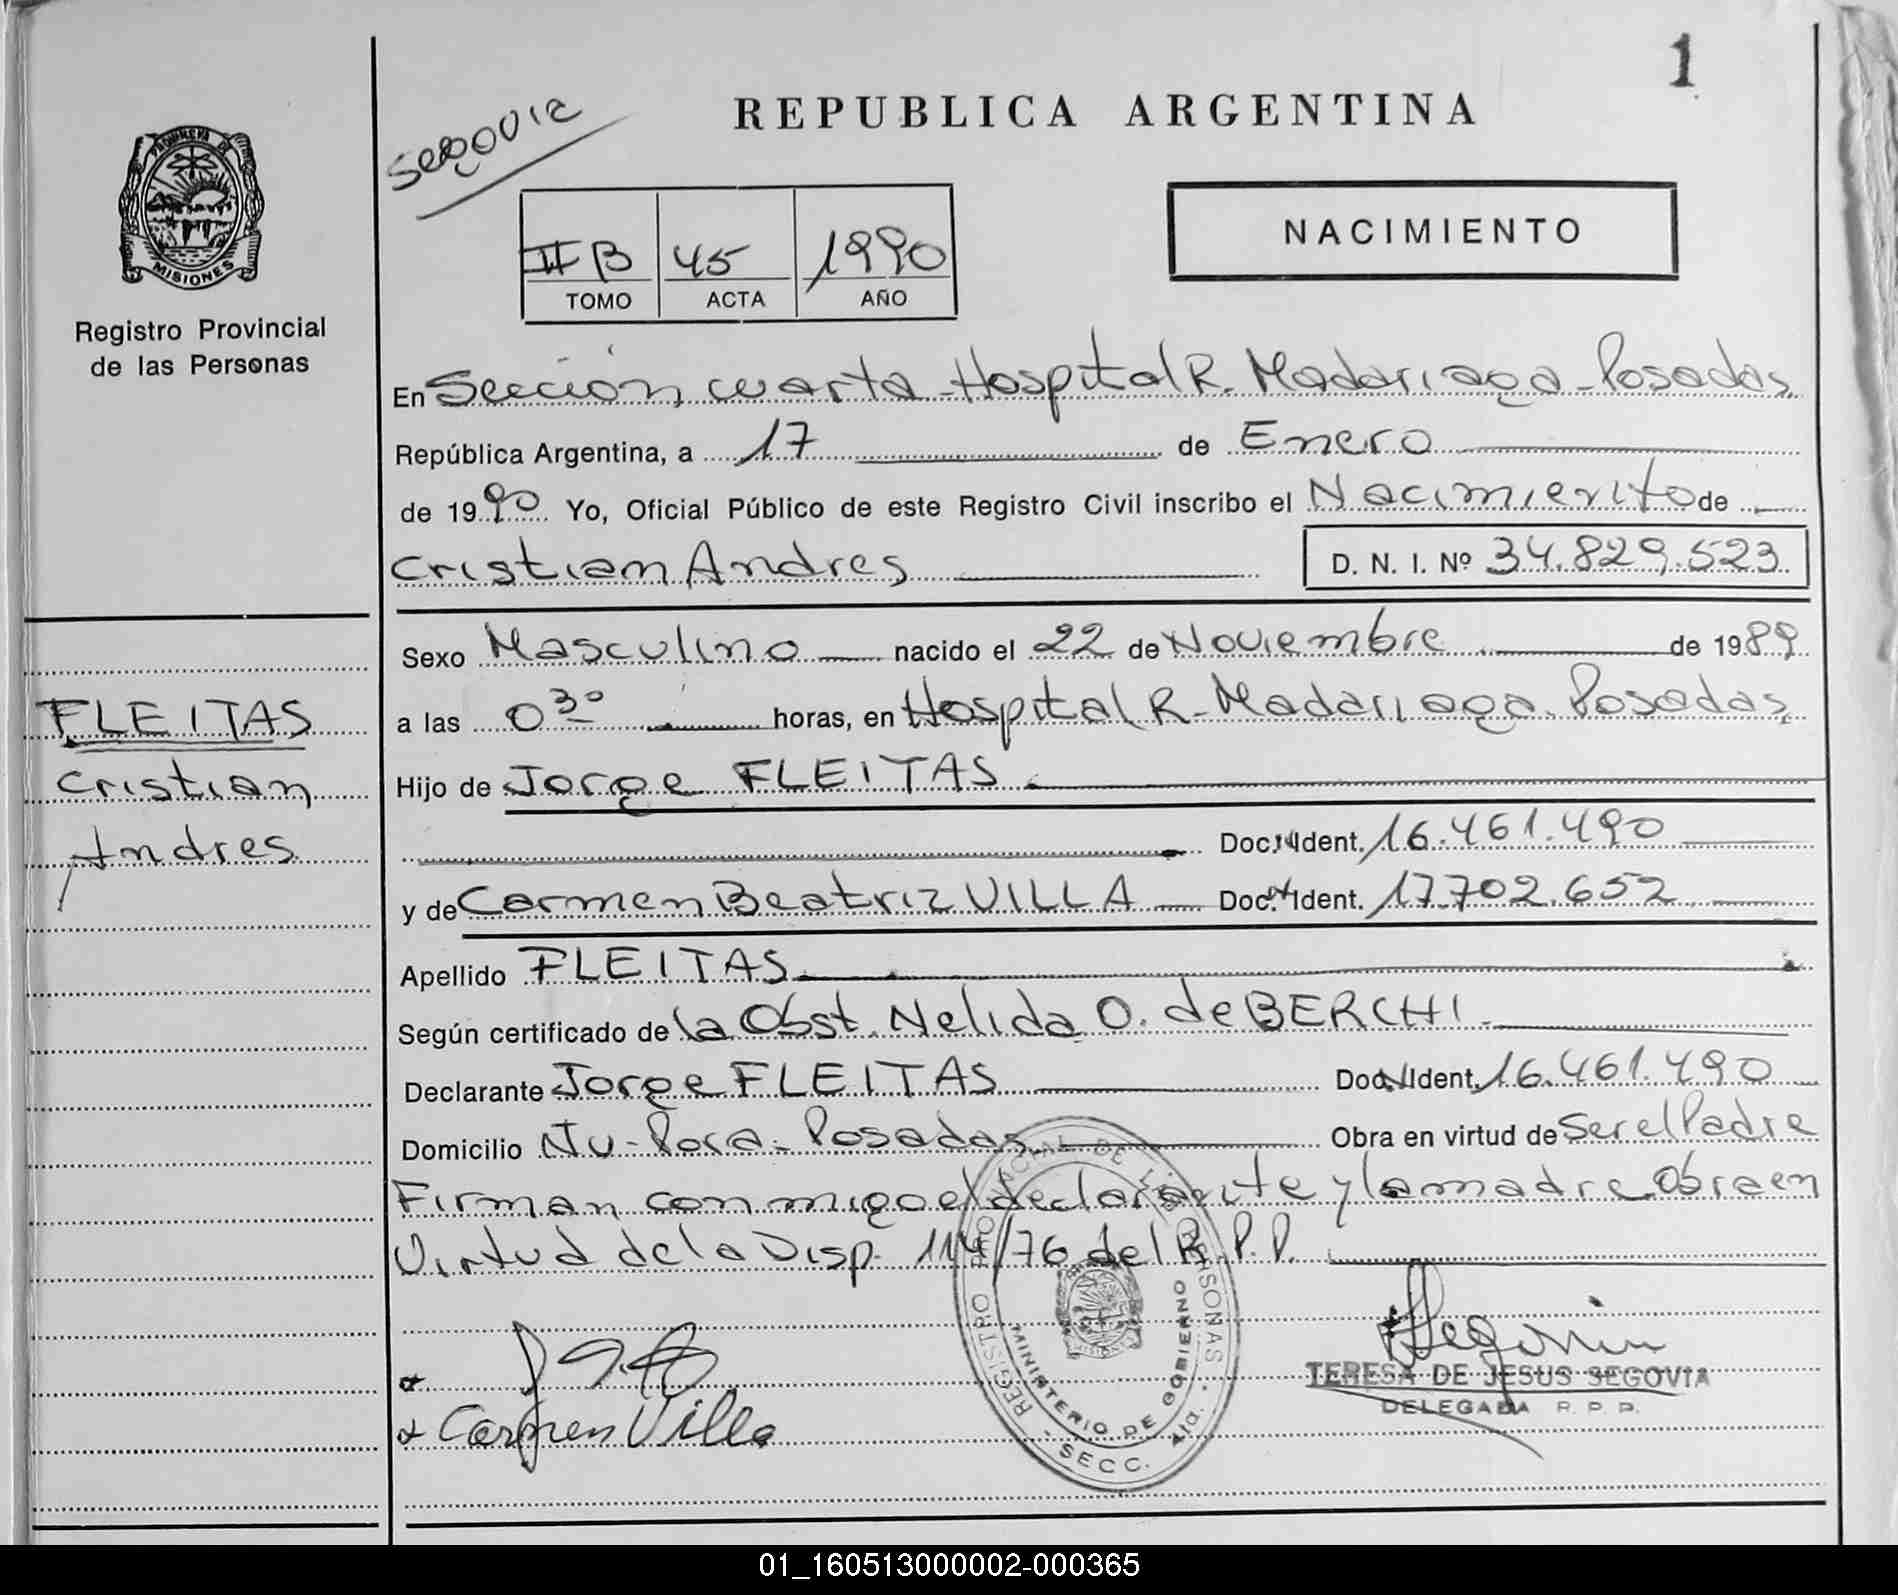 1
REPUBLICA ARGENTINA
Segovia
PROVINCIA DE
MISIONES
Registro Provincial
de las Personas
NACIMIENTO
II B 45 1990
TOMO ACTA AÑO
En Sección cuarta - Hospital R. Madariaga - Posadas
República Argentina, a 17 de Enero
de 1990 Yo, Oficial Público de este Registro Civil inscribo el Nacimiento de
Cristian Andres D. N. I. Nº 34.829.523
Sexo Masculino nacido el 22 de Noviembre de 1989
a las 0 30 horas, en Hospital R. Madariaga. Posadas
FLEITAS
Cristian
Andres
Hijo de Jorge FLEITAS
Doc. N Ident. 16.461.490
y de Carmen Beatriz VILLA Doc. N Ident. 17.702.652
Apellido FLEITAS
Según certificado de la Obst. Nelida O. de BERCHI
Declarante Jorge FLEITAS Doc. N Ident. 16.461.490
Domicilio Ñu-Pora - Posadas Obra en virtud de Ser el Padre
Firman conmigo el declarante y la madre. Obra en
Virtud de la Disp. 114/76 del R. P. P.
REGISTRO PROVINCIAL DE LAS PERSONAS
MINISTERIO DE GOBIERNO
MISIONES
SECC. 4ta.
Carmen Villa
Segovia
TERESA DE JESUS SEGOVIA
DELEGADA R. P. P.
01_160513000002-000365